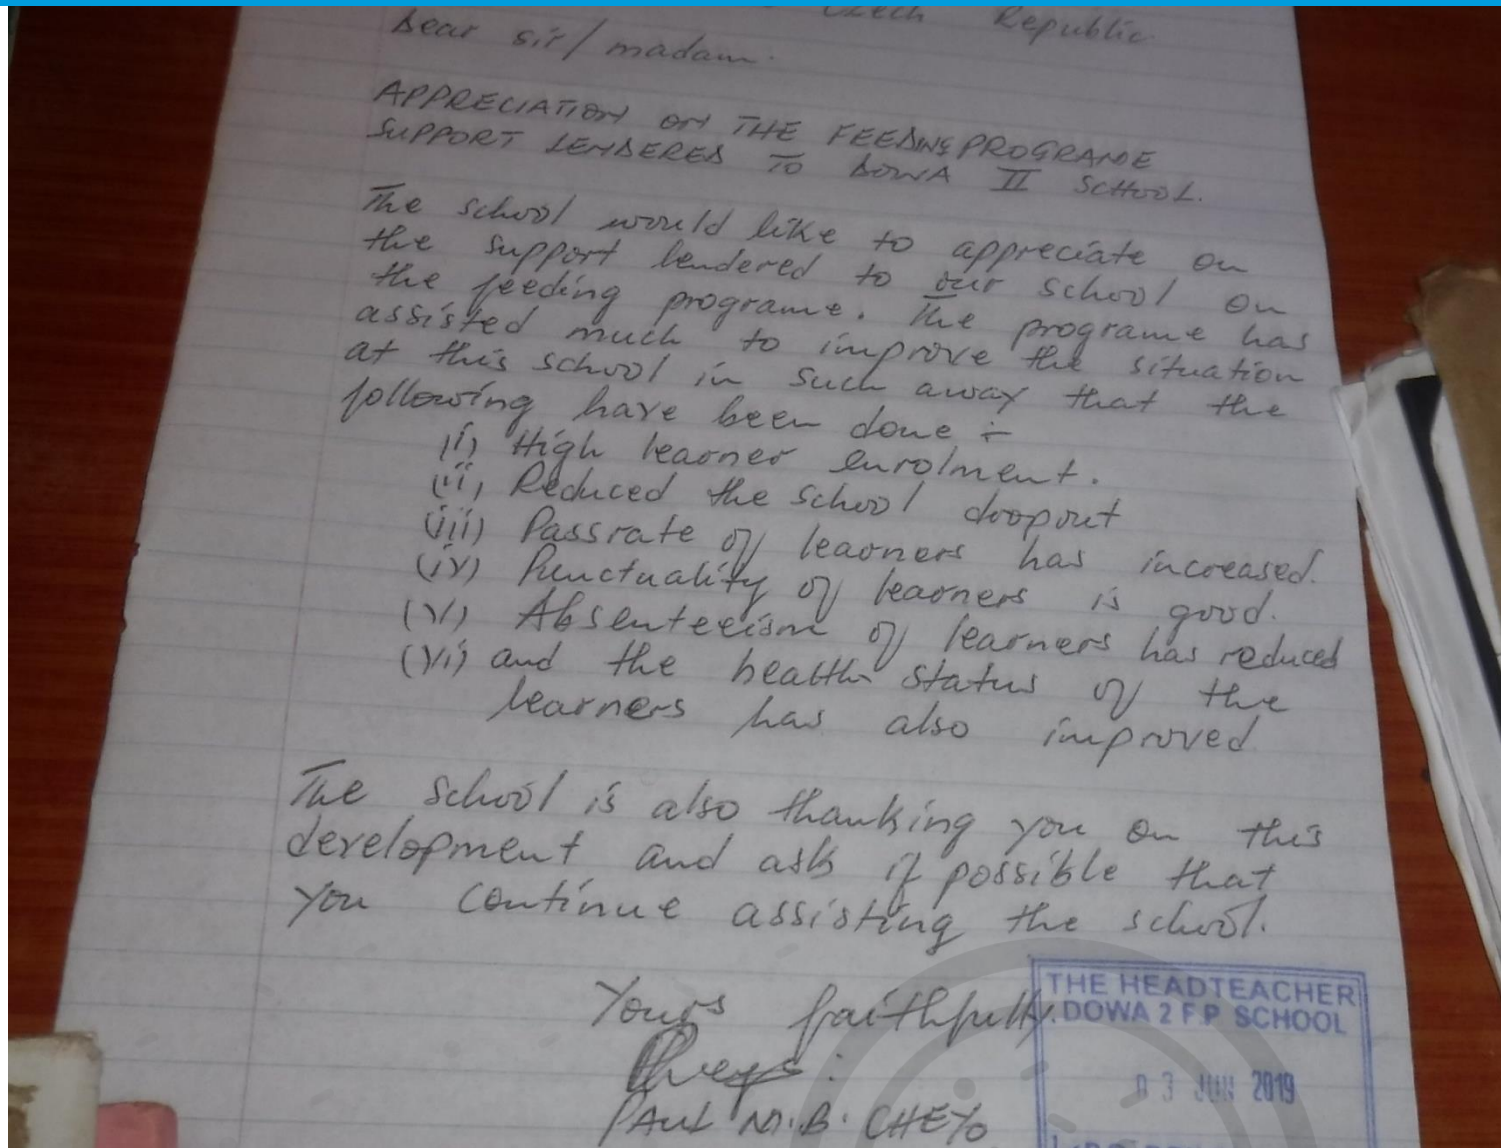 Czech Republic
Dear sir/madam.
APPRECIATION ON THE FEEDING PROGRAME
SUPPORT LENDERED TO DOWA II SCHOOL.
The school would like to appreciate on
the support lendered to our school on
the feeding programe. The programe has
assisted much to improve the situation
at this school in such away that the
following have been done :-
(i) High learner enrolment.
(ii) Reduced the school dropout
(iii) Passrate of learners has increased.
(iv) Punctuality of learners is good.
(v) Absenteeism of learners has reduced
(vi) and the health status of the
learners has also improved
The school is also thanking you on this
development and ask if possible that
you continue assisting the school.
Yours faithfully.
PAUL M.B. CHEYO
THE HEADTEACHER
DOWA 2 F.P SCHOOL
03 JUN 2019